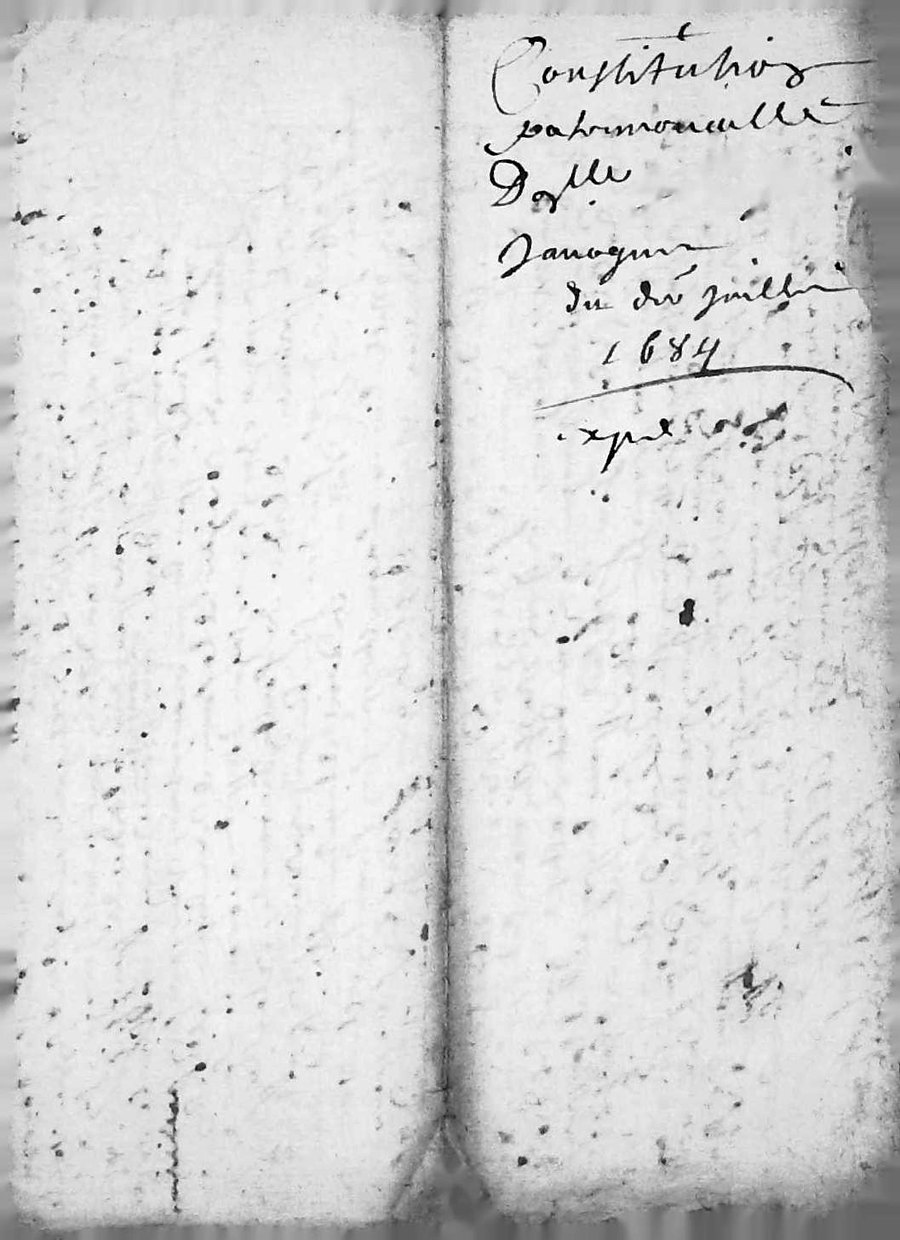 Constitution
patrimonialle
Janoguin
du dix juillet
1684
expd